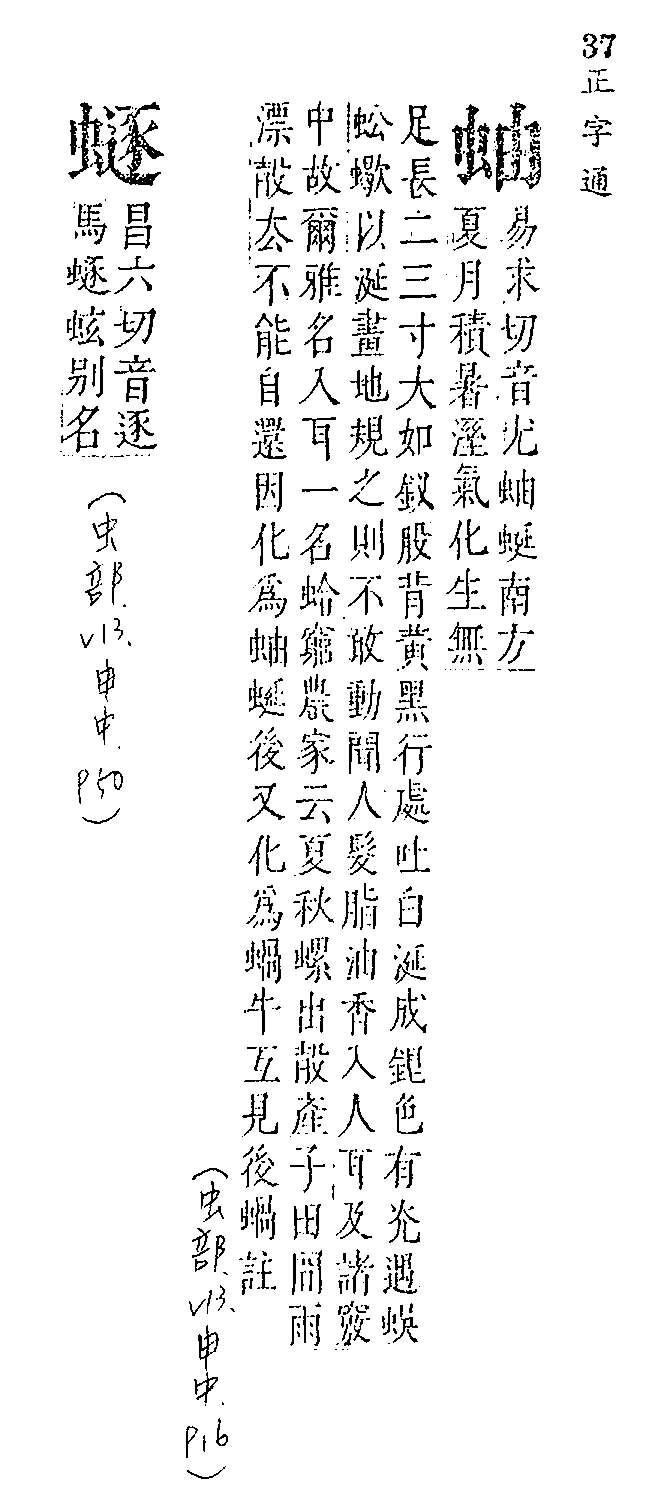 37 正字通
蚰
易求切音尤蚰蜒南方
夏月積暑溼氣化生無
足長二三寸大如釵股背黃黑行處吐白涎成銀色有光遇蜈
蚣蠍以涎畫地規之則不敢動聞人髮脂油香入人耳及諸竅
中故爾雅名入耳一名蛉窮農家云夏秋螺出殼產子田間雨
漂殼去不能自還因化爲蚰蜒後又化爲蝸牛互見後蝸註
(虫部.v13.申中.p16)
蟃
昌六切音逐
馬蟃蚿別名
(虫部.v13.申中.p50)